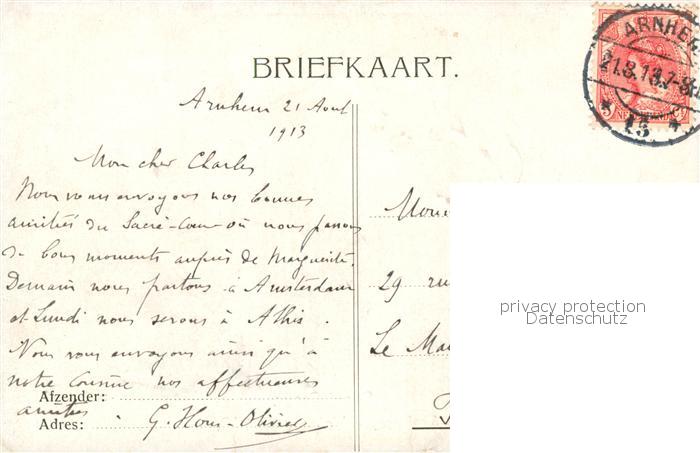 BRIEFKAART.
ARNHEM
21.8.13.7-8
13
Arnhem 21 Aout
1913
Mon cher Charles
Nous vous envoyons nos bonnes
amitiés du Sacré-Coeur où nous passons
de bons moments auprès de Marguerite.
Demain nous partons à Amsterdam
et Lundi nous serons à Athis.
Nous vous envoyons ainsi qu'à
notre Cousine nos affectueuses
amitiés.
Afzender:
Adres:
G. Olivier
29 ru
Le Ma
privacy protection
Datenschutz